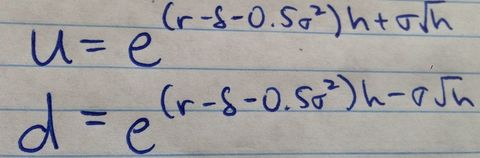 u = e^{(r-δ-0.5σ²)h+σ√h}
d = e^{(r-δ-0.5σ²)h-σ√h}